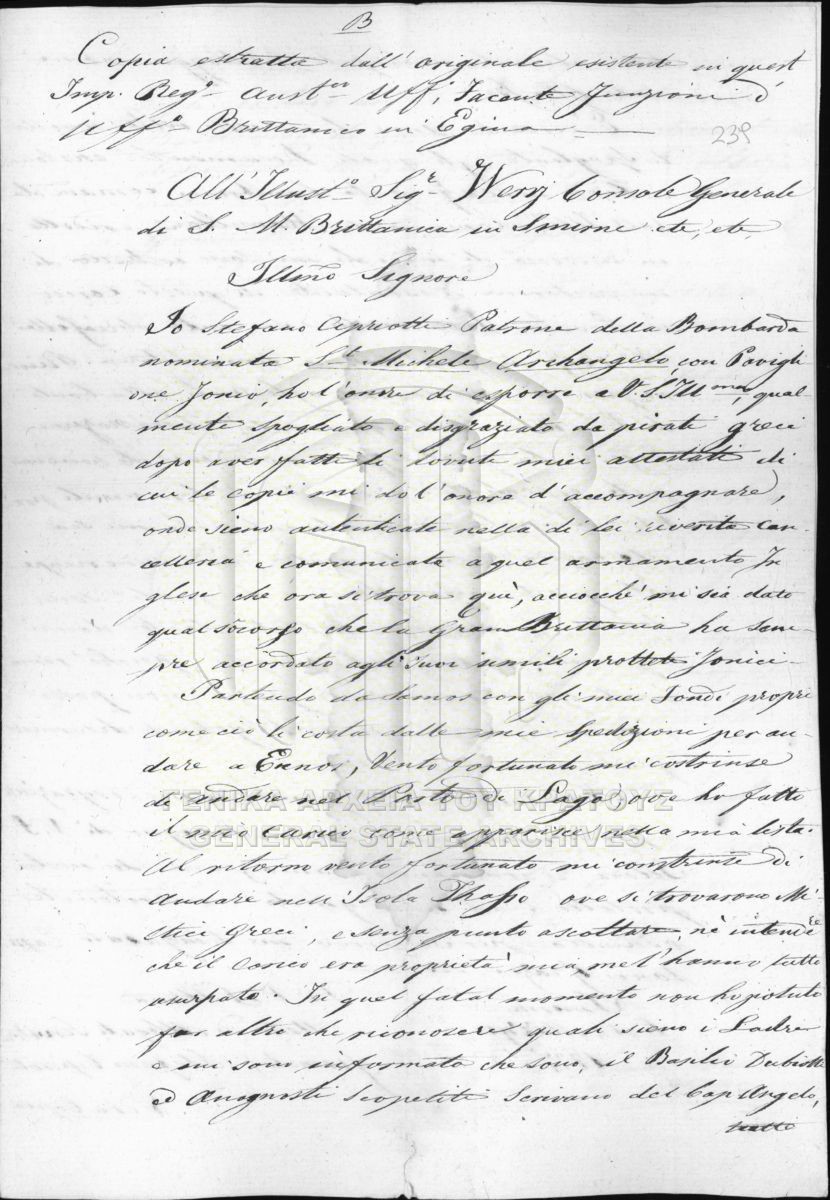 B
Copia estratta dall'originale esistente in quest
Imp. Regº Austºº Uff, Facente Funzioni d'
Uffº Brittanico in Egina
239
All'Illustº Sigʳ Werry Console Generale
di S. M. Brittanica in Smirne etc, etc,
Illmo Signore
Io Stefano Cipriotti Patrone della Bombarda
nominata Sᵗ Michele Archangelo, con Pavigli
one Jonio, ho l'onore di esporre a V. S. Illᵐᵃ, qual
mente spogliato e disgraziato da pirati greci
dopo aver fatti li dovuti miei attestati di
cui le copie mi do l'onore d'accompagnare,
onde sieno autenticate nella di lei riverita can-
celleria e comunicate a quel armamento In
glese che ora si trova quì, acciocché mi sia dato
qual socorso che la Gran Brittania ha sem-
pre accordato agli suoi simili prottetti Jonici-
Partendo da Samos con gli miei fondi propri
come ciò li costa dalle mie Spedizioni per an-
dare a Ennos, Vento fortunato mi costrinse
di andare nel Porto di Lago, ove ho fatto
il mio Carico come apparisce nella mia lista.
ΓΕΝΙΚΑ ΑΡΧΕΙΑ ΤΟΥ ΚΡΑΤΟΥΣ
GENERAL STATE ARCHIVES
Al ritorno vento fortunato mi constrinse di
andare nell'Isola Thasso ove si trovarono Mi-
stici Greci, e senza punto ascoltare, nè intendʳᵉ
che il Carico era proprietà mia me l'hanno tutto
usurpato. In quel fatal momento non ho potuto
far altro che riconoscere quali sieno i Ladri
e mi sono informato che sono, il Basilio
ed Anagnosti Scopeliti Scrivano del Cap Angelo,
tutti